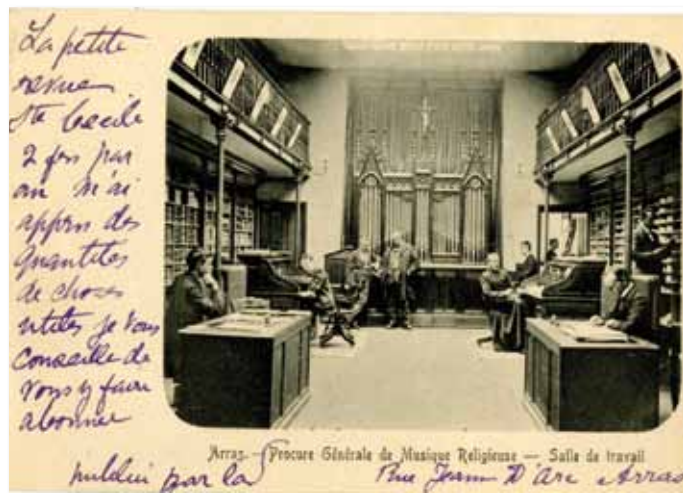 La petite
revue
Ste Cecile
2 fois par
an m'ai
appris des
quantités
de choses
utiles je vous
conseille de
vous y faire
abonner
Arras. — Procure Générale de Musique Religieuse — Salle de travail
par la
Rue Jeanne D'Arc Arras